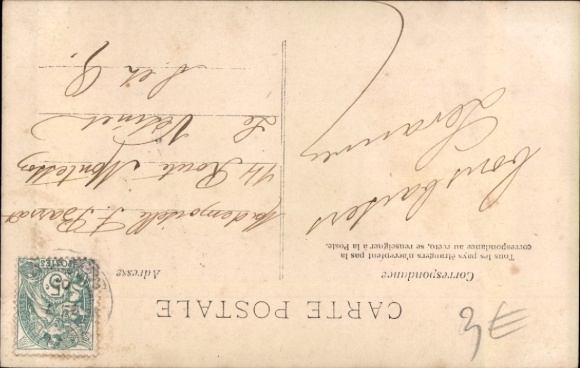 CARTE POSTALE
Correspondance
Tous les pays étrangers n'acceptent pas la
correspondance au recto, se renseigner à la Poste.
Adresse
Bons baisers
Mademoiselle J. Barrat
14 Route Montesson
Le Vésinet
S et O.
3€